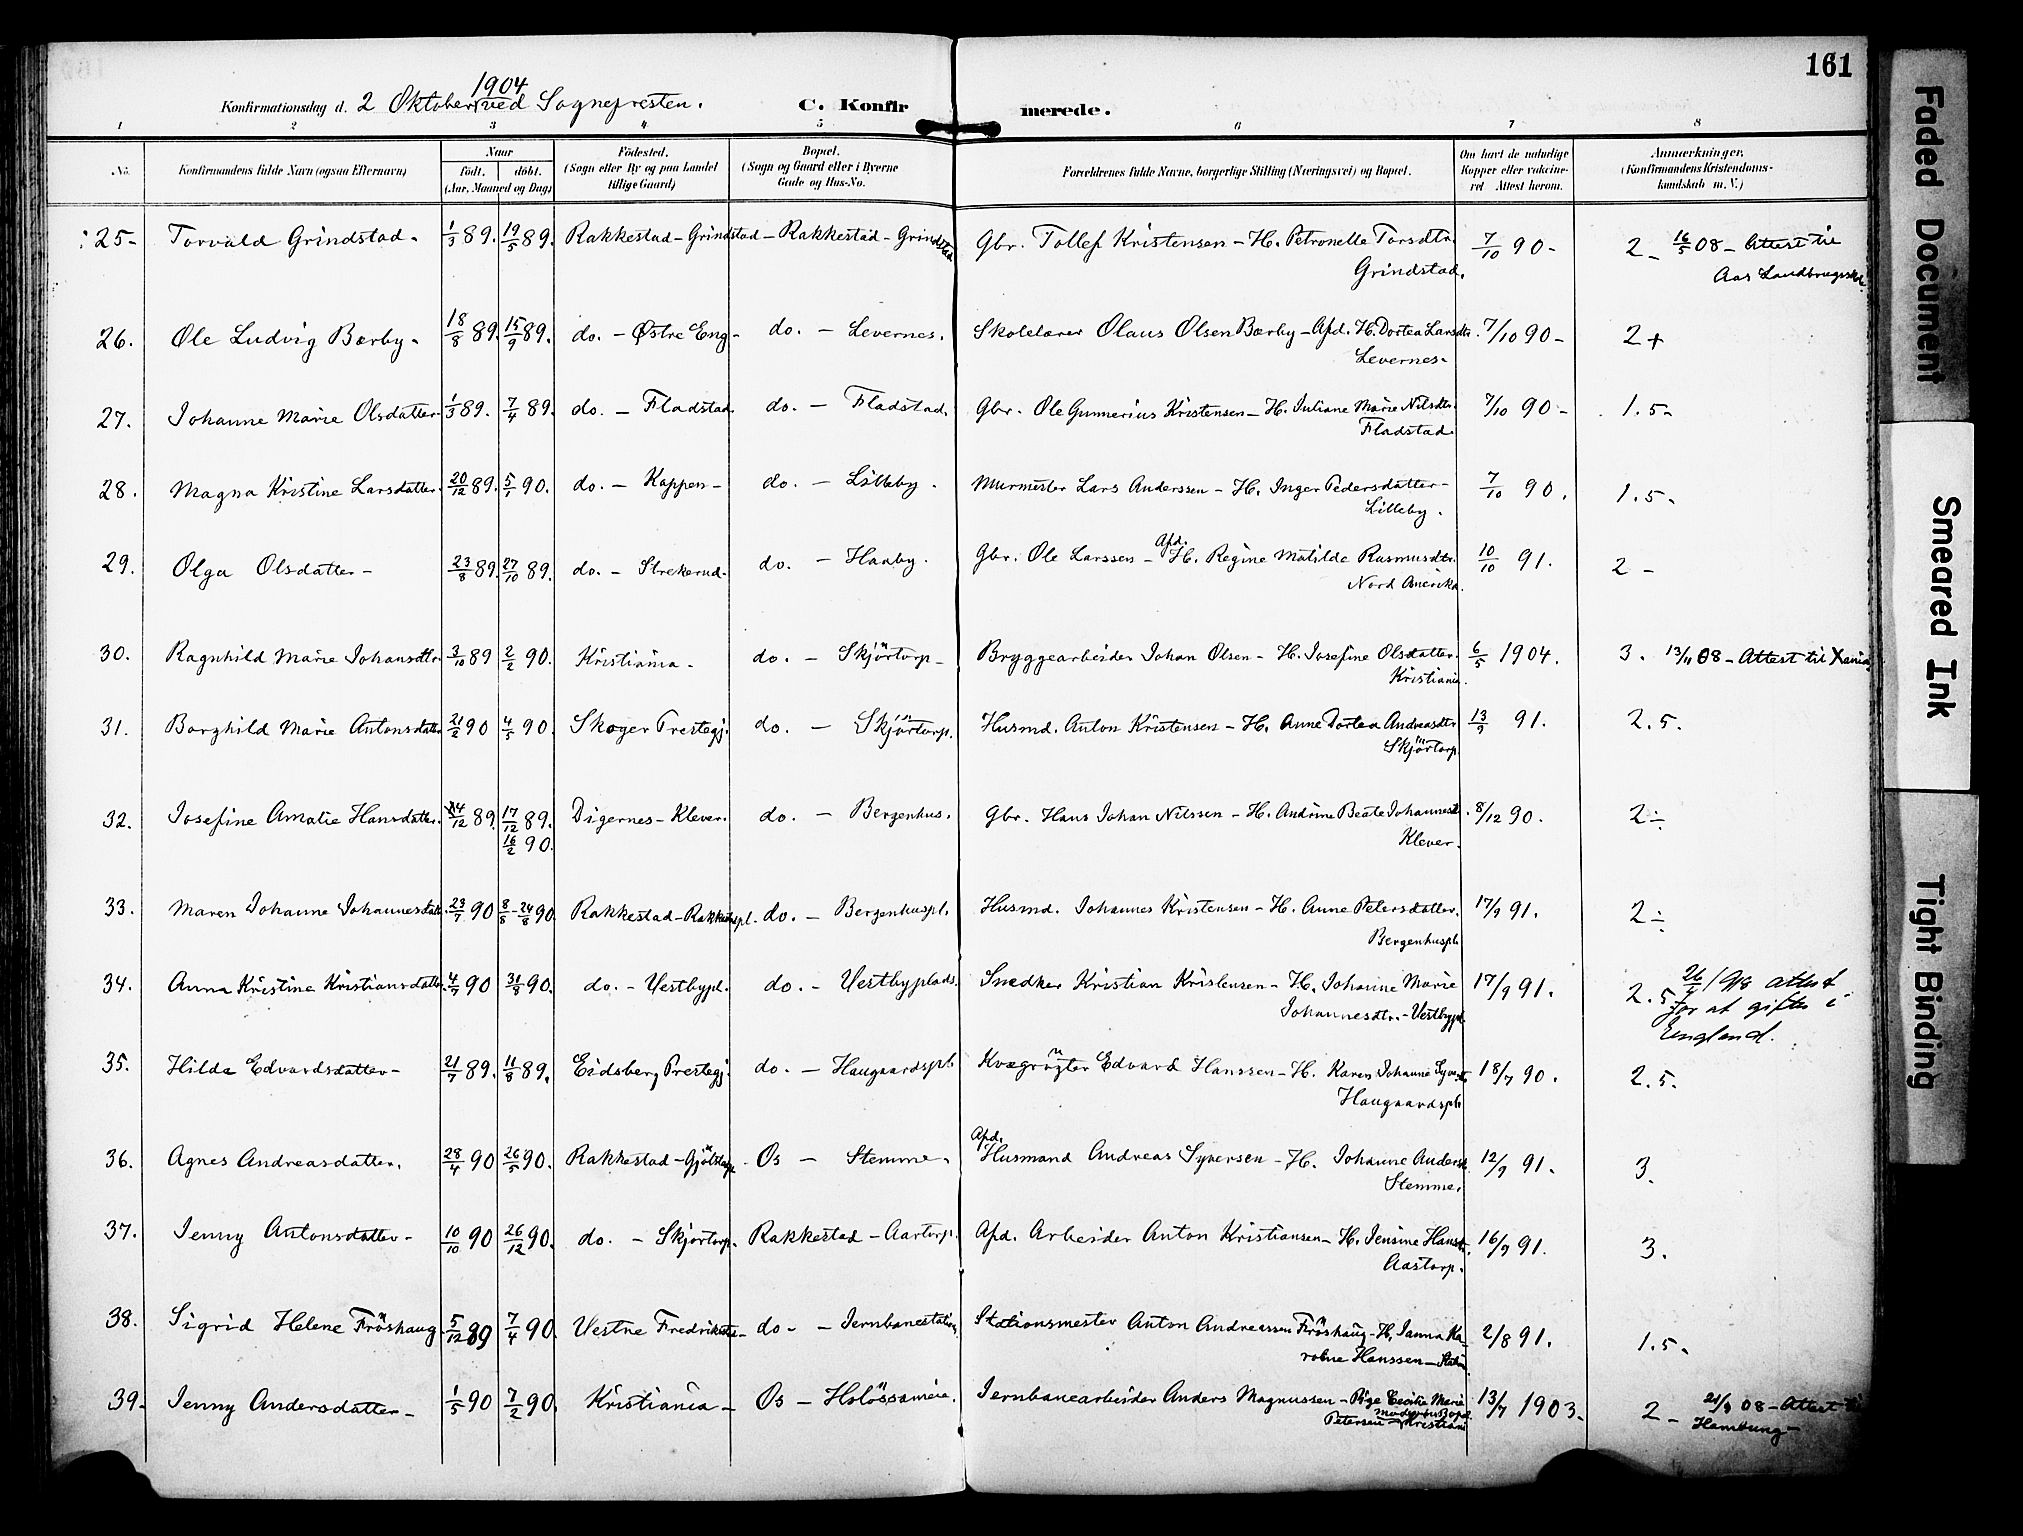 161
1904
Konfirmationsdag d. 2 Oktober ved Sognepresten.
C. Konfirmerede.
1 2 3 4 5 6 7 8
No.
Konfirmandens fulde Navn (ogsaa Efternavn)
Naar
født. døbt.
(Aar, Maaned og Dag)
Fødested.
(Sogn eller By og paa Landet
tillige Gaard)
Bopæl.
(Sogn og Gaard eller i Byerne
Gade og Hus-No.
Forældrenes fulde Navne, borgerlige Stilling (Næringsvei) og Bopæl.
Om havt de naturlige
Kopper eller vakcineret
Attest herom.
Anmærkninger,
(Konfirmandens Kristendomskundskab
m. V.)
25- Torvald Grindstad. 1/3 89. 19/5 89. Rakkestad - Grindstad - Rakkestad - Grindstad Gbr. Tollef Kristensen - H. Petronelle Torsdtr. 7/10 90- 2- 16/5 08- Attest til
Grindstad. Aas Landbrugssk.
26. Ole Ludvig Bærby. 18/8 89. 15/9 89. do. - Østre Eng- do. - Levernes. Skolelærer Olaus Olsen Bærby - Afd. H. Dortea Larsdtr. 7/10 90- 2+
Levernes-
27. Johanne Marie Olsdatter. 1/3 89. 7/4 89. do. - Fladstad. do. - Fladstad. Gbr. Ole Gunnerius Kristensen - H. Juliane Marie Nilsdtr. 7/10 90- 1.5-
Fladstad.
28. Magna Kristine Larsdatter. 20/12 89. 5/1 90. do. - Kappen- do. - Lilleby. Murmester Lars Anderssen - H. Inger Pedersdatter- 7/10 90. 1.5-
Lilleby.
29. Olga Olsdatter- 23/8 89. 27/10 89. do. - Strekerud. do. - Haaby. Gbr. Ole Larssen - Afd. H. Regine Matilde Rasmusdtr. 10/10 91. 2-
Nord Amerika.
30. Ragnhild Marie Johansdtr. 3/10 89 2/2 90. Kristiania- do. - Skjörtorp- Bryggearbeider Johan Olsen - H. Josefine Olsdatter. 6/5 1904. 3. 13/11 08- Attest til Xania
Kristiania.
31. Borghild Marie Antonsdatter 21/2 90 4/5 90. Skoger Prestegj. do. - Skjörtorp. Husmd. Anton Kristensen - H. Anne Dortea Andreasdtr 13/9 91. 2.5.
Skjörtorp.
32. Josefine Amalie Hansdatter. 4/12 89. 17/12 89. Digernes - Klever. do. - Bergenhus. Gbr. Hans Johan Nilssen - H. Andrine Beate Johannesd. 8/12 90. 2÷
16/2 90. Klever.
33. Maren Johanne Johannesdatt. 23/7 90 8/8 - 24/8 90. Rakkestad - Rakkestadpl. do. - Bergenhuspl. Husmd. Johannes Kristensen - H. Anne Petersdatter. 17/9 91. 2÷
Bergenhuspl.
34. Anna Kristine Kristiansdatter. 4/7 90 31/8 90. do. - Vestbypl. do. - Vestbyplads. Snedker Kristian Kristensen - H. Johanne Marie 17/9 91. 2.5. attest
Johannesdtr. - Vestbypl. for at giftes i
England.
35. Hilda Edvardsdatter- 21/7 89. 11/8 89. Eidsberg Prestegj. do. - Haugaardspl. Kvægrögter Edvard Hanssen - H. Karen Johanne 18/7 90. 2.5.
Haugaardspl.
36. Agnes Andreasdatter. 28/4 90 26/5 90. Rakkestad - Os - Stemme. Afd. Husmand Andreas Syversen - H. Johanne Andersd. 12/9 91. 3.
Stemme.
37. Jenny Antonsdatter- 10/10 90 26/12 90. do. - Skjörtorp. Rakkestad - Aastorp. Afd. Arbeider Anton Kristiansen - H. Jensine Hansdtr. 16/9 91. 3.
Aastorp.
38. Sigrid Helene Fröshaug 5/12 89 7/4 90. Vestre Fredrikstad do- - Jernbanestation Stationsmester Anton Andreassen Fröshaug - H. Janna Ka- 2/8 91. 1.5-
roline Hanssen - Station
39. Jenny Andersdatter- 1/5 90 7/2 90. Kristiania- Os - Jernbanearbeider Anders Magnussen - Pige Cecilie Marie 13/7 1903- 2- 21/9 08- Attest til
Petersen - Kristiania Hamburg-
Faded Document
Smeared Ink
Tight Binding